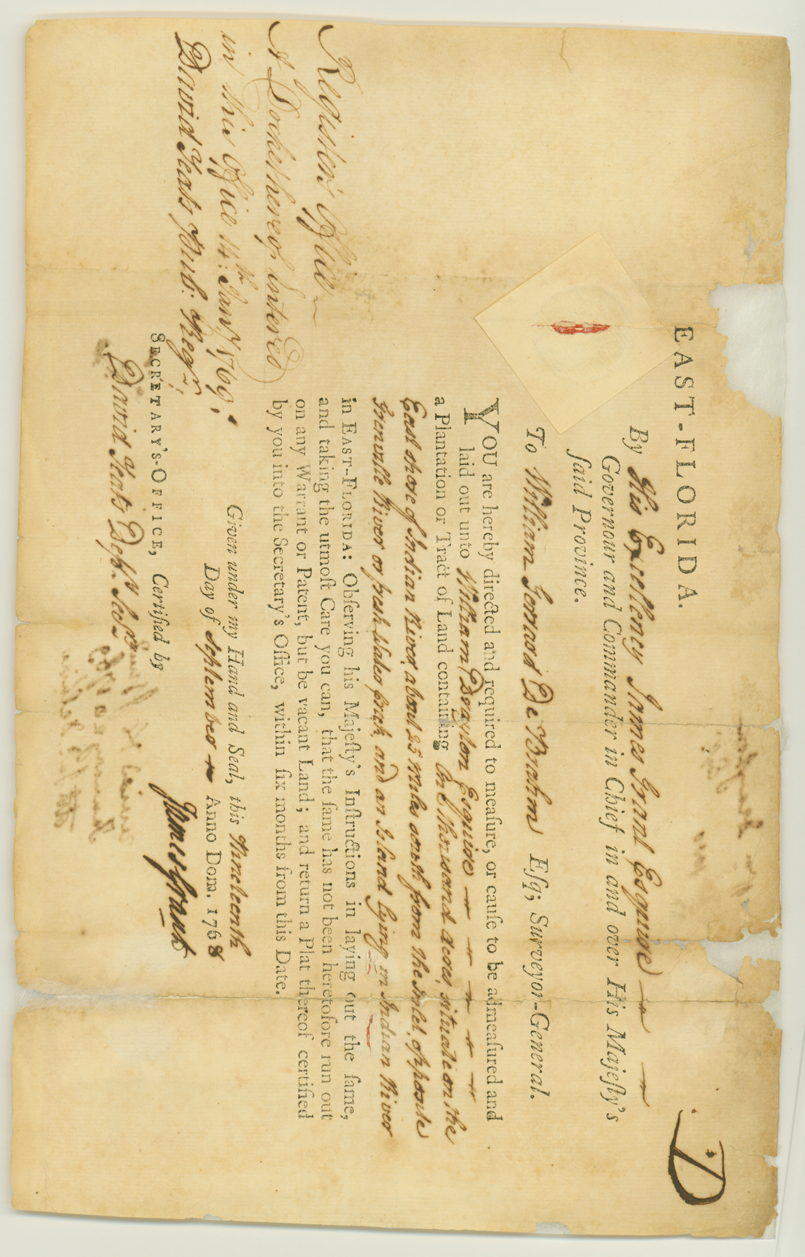 D
EAST-FLORIDA.
By His Excellency James Grant Esquire
Governour and Commander in Chief in and over His Majeſty's
ſaid Province.
To William Gerrard De Brahm Eſq; Surveyor-General.
YOU are hereby directed and required to meaſure, or cauſe to be admeaſured and
laid out unto William Drayton Esquire
a Plantation or Tract of Land containing One Thousand Acres, situate on the
East shore of Indian River about 25 miles south from the Inlet, opposite
Grenville River or fresh Water Branch and an Island lying in Indian River
in EAST-FLORIDA: Obſerving his Majeſty's Inſtructions in laying out the ſame,
and taking the utmoſt Care you can, that the ſame has not been heretofore run out
on any Warrant or Patent, but be vacant Land; and return a Plat thereof certified
by you into the Secretary's Office, within ſix months from this Date.
Given under my Hand and Seal, this Nineteenth
Day of September Anno Dom. 1768
James Grant
SECRETARY'S-OFFICE, Certified by
David Yeats Depy. Secry.
Registers Office
A Docket hereof Entered
in this Office 14th. Jany. 1769.
David Yeats Dub: Regr.